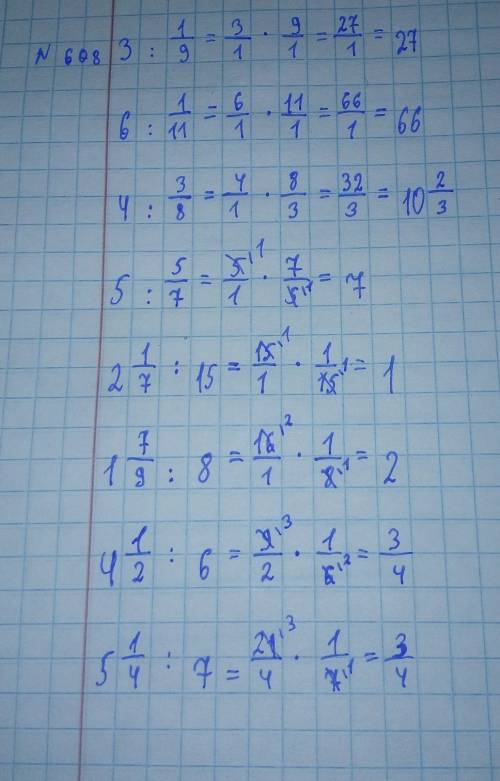 N 608 3 : 1/9 = 3/1 · 9/1 = 27/1 = 27
6 : 1/11 = 6/1 · 11/1 = 66/1 = 66
4 : 3/8 = 4/1 · 8/3 = 32/3 = 10 2/3
5 : 5/7 = 5 1/1 · 7/5 1 = 7
2 1/7 : 15 = 15 1/1 · 1/15 1 = 1
1 7/9 : 8 = 16 2/1 · 1/8 1 = 2
4 1/2 : 6 = 9 3/2 · 1/6 2 = 3/4
5 1/4 : 7 = 21 3/4 · 1/7 1 = 3/4